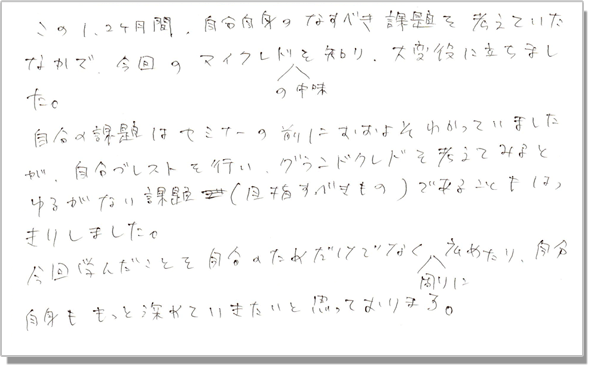 この1,2ヶ月間、自分自身のなすべき課題を考えていた
なかで、今回のマイクレドを知り、大変役に立ちまし
の中味
た。
自分の課題はセミナーの前におおよそわかっていました
が、自分ブレストを行い、グランドクレドを考えてみると
ゆるがない課題(目指すべきもの)であることもはっ
きりしました。
今回学んだことを自分のためだけでなく広めたり、自分
周りに
自身ももっと深めていきたいと思っております。